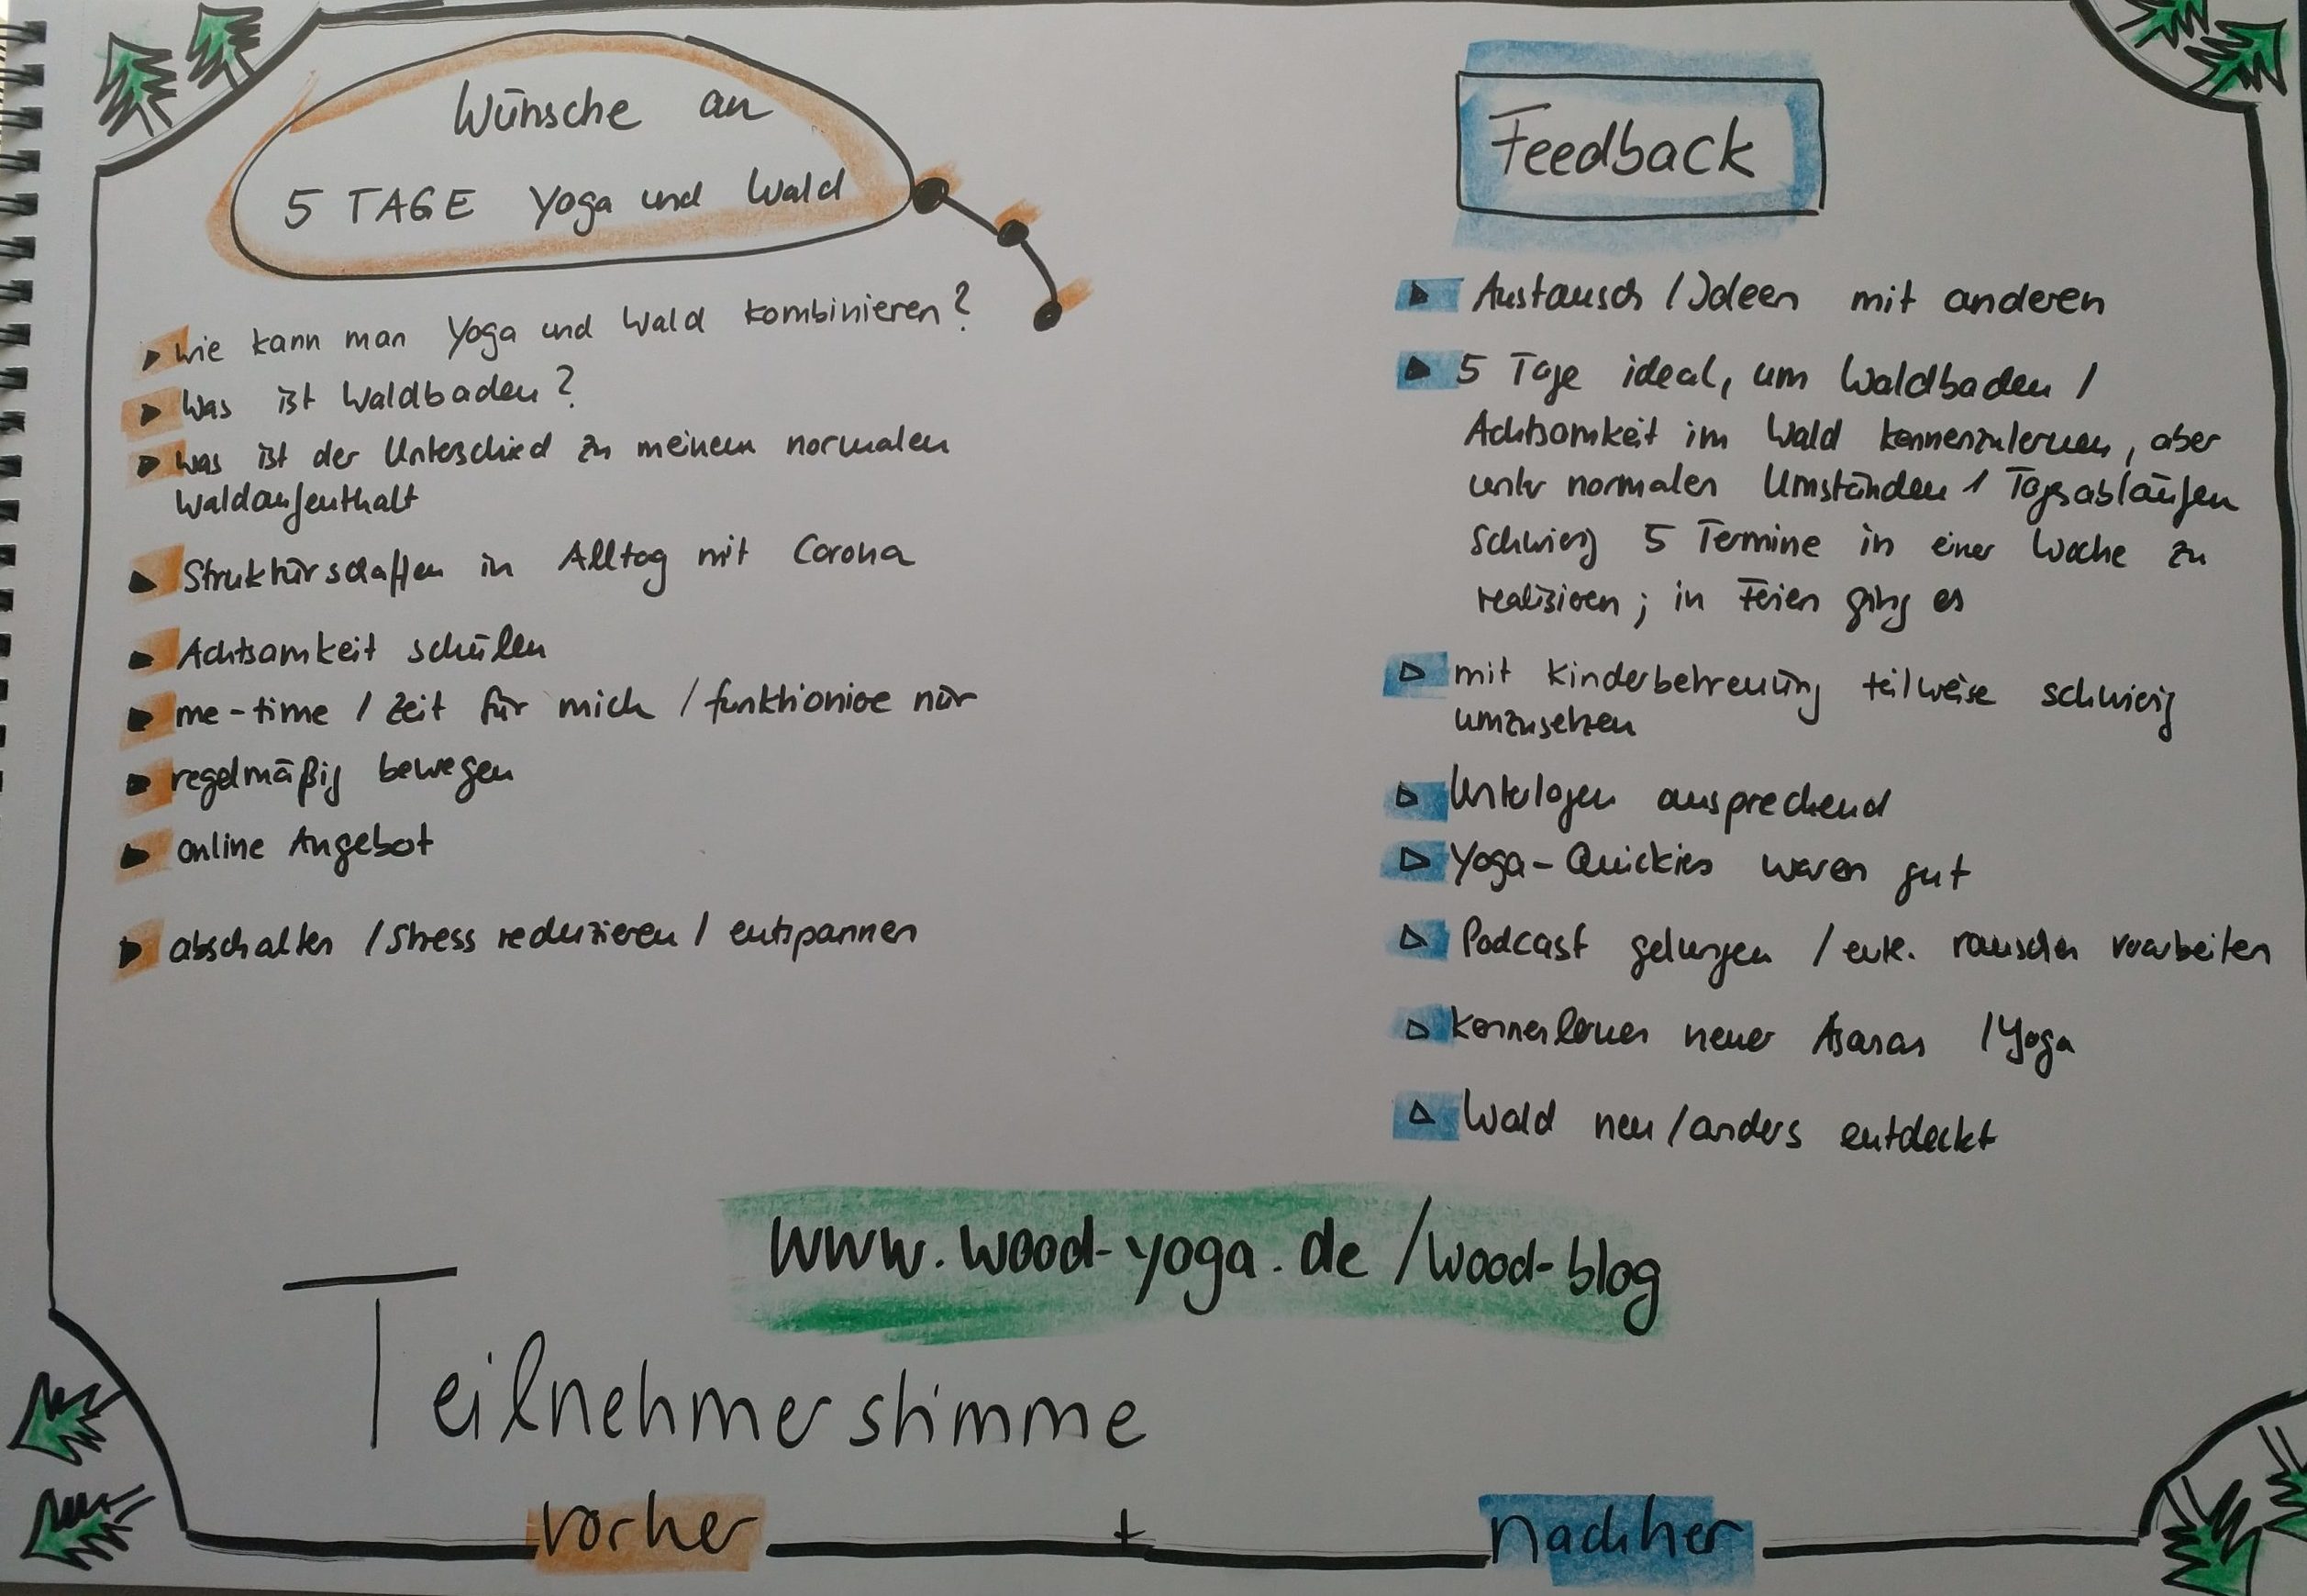 Wünsche an
5 TAGE Yoga und Wald
wie kann man Yoga und Wald kombinieren?
Was ist Waldbaden?
was ist der Unterschied zu meinem normalen
Waldaufenthalt
Struktur schaffen in Alltag mit Corona
Achtsamkeit schulen
me-time / Zeit für mich / funktioniere nur
regelmäßig bewegen
online Angebot
abschalten / Stress reduzieren / entspannen
Feedback
Austausch / Ideen mit anderen
5 Tage ideal, um Waldbaden /
Achtsamkeit im Wald kennenzulernen, aber
unter normalen Umständen / Tagesabläufen
schwierig 5 Termine in einer Woche zu
realisieren; in Ferien ging es
mit Kinderbetreuung teilweise schwierig
umzusetzen
Unterlagen ansprechend
Yoga-Quickies waren gut
Podcast gelungen / rauschen
Kennenlernen neuer Asanas / Yoga
Wald neu / anders entdeckt
www.wood-yoga.de/wood-blog
Teilnehmerstimme
vorher + nachher